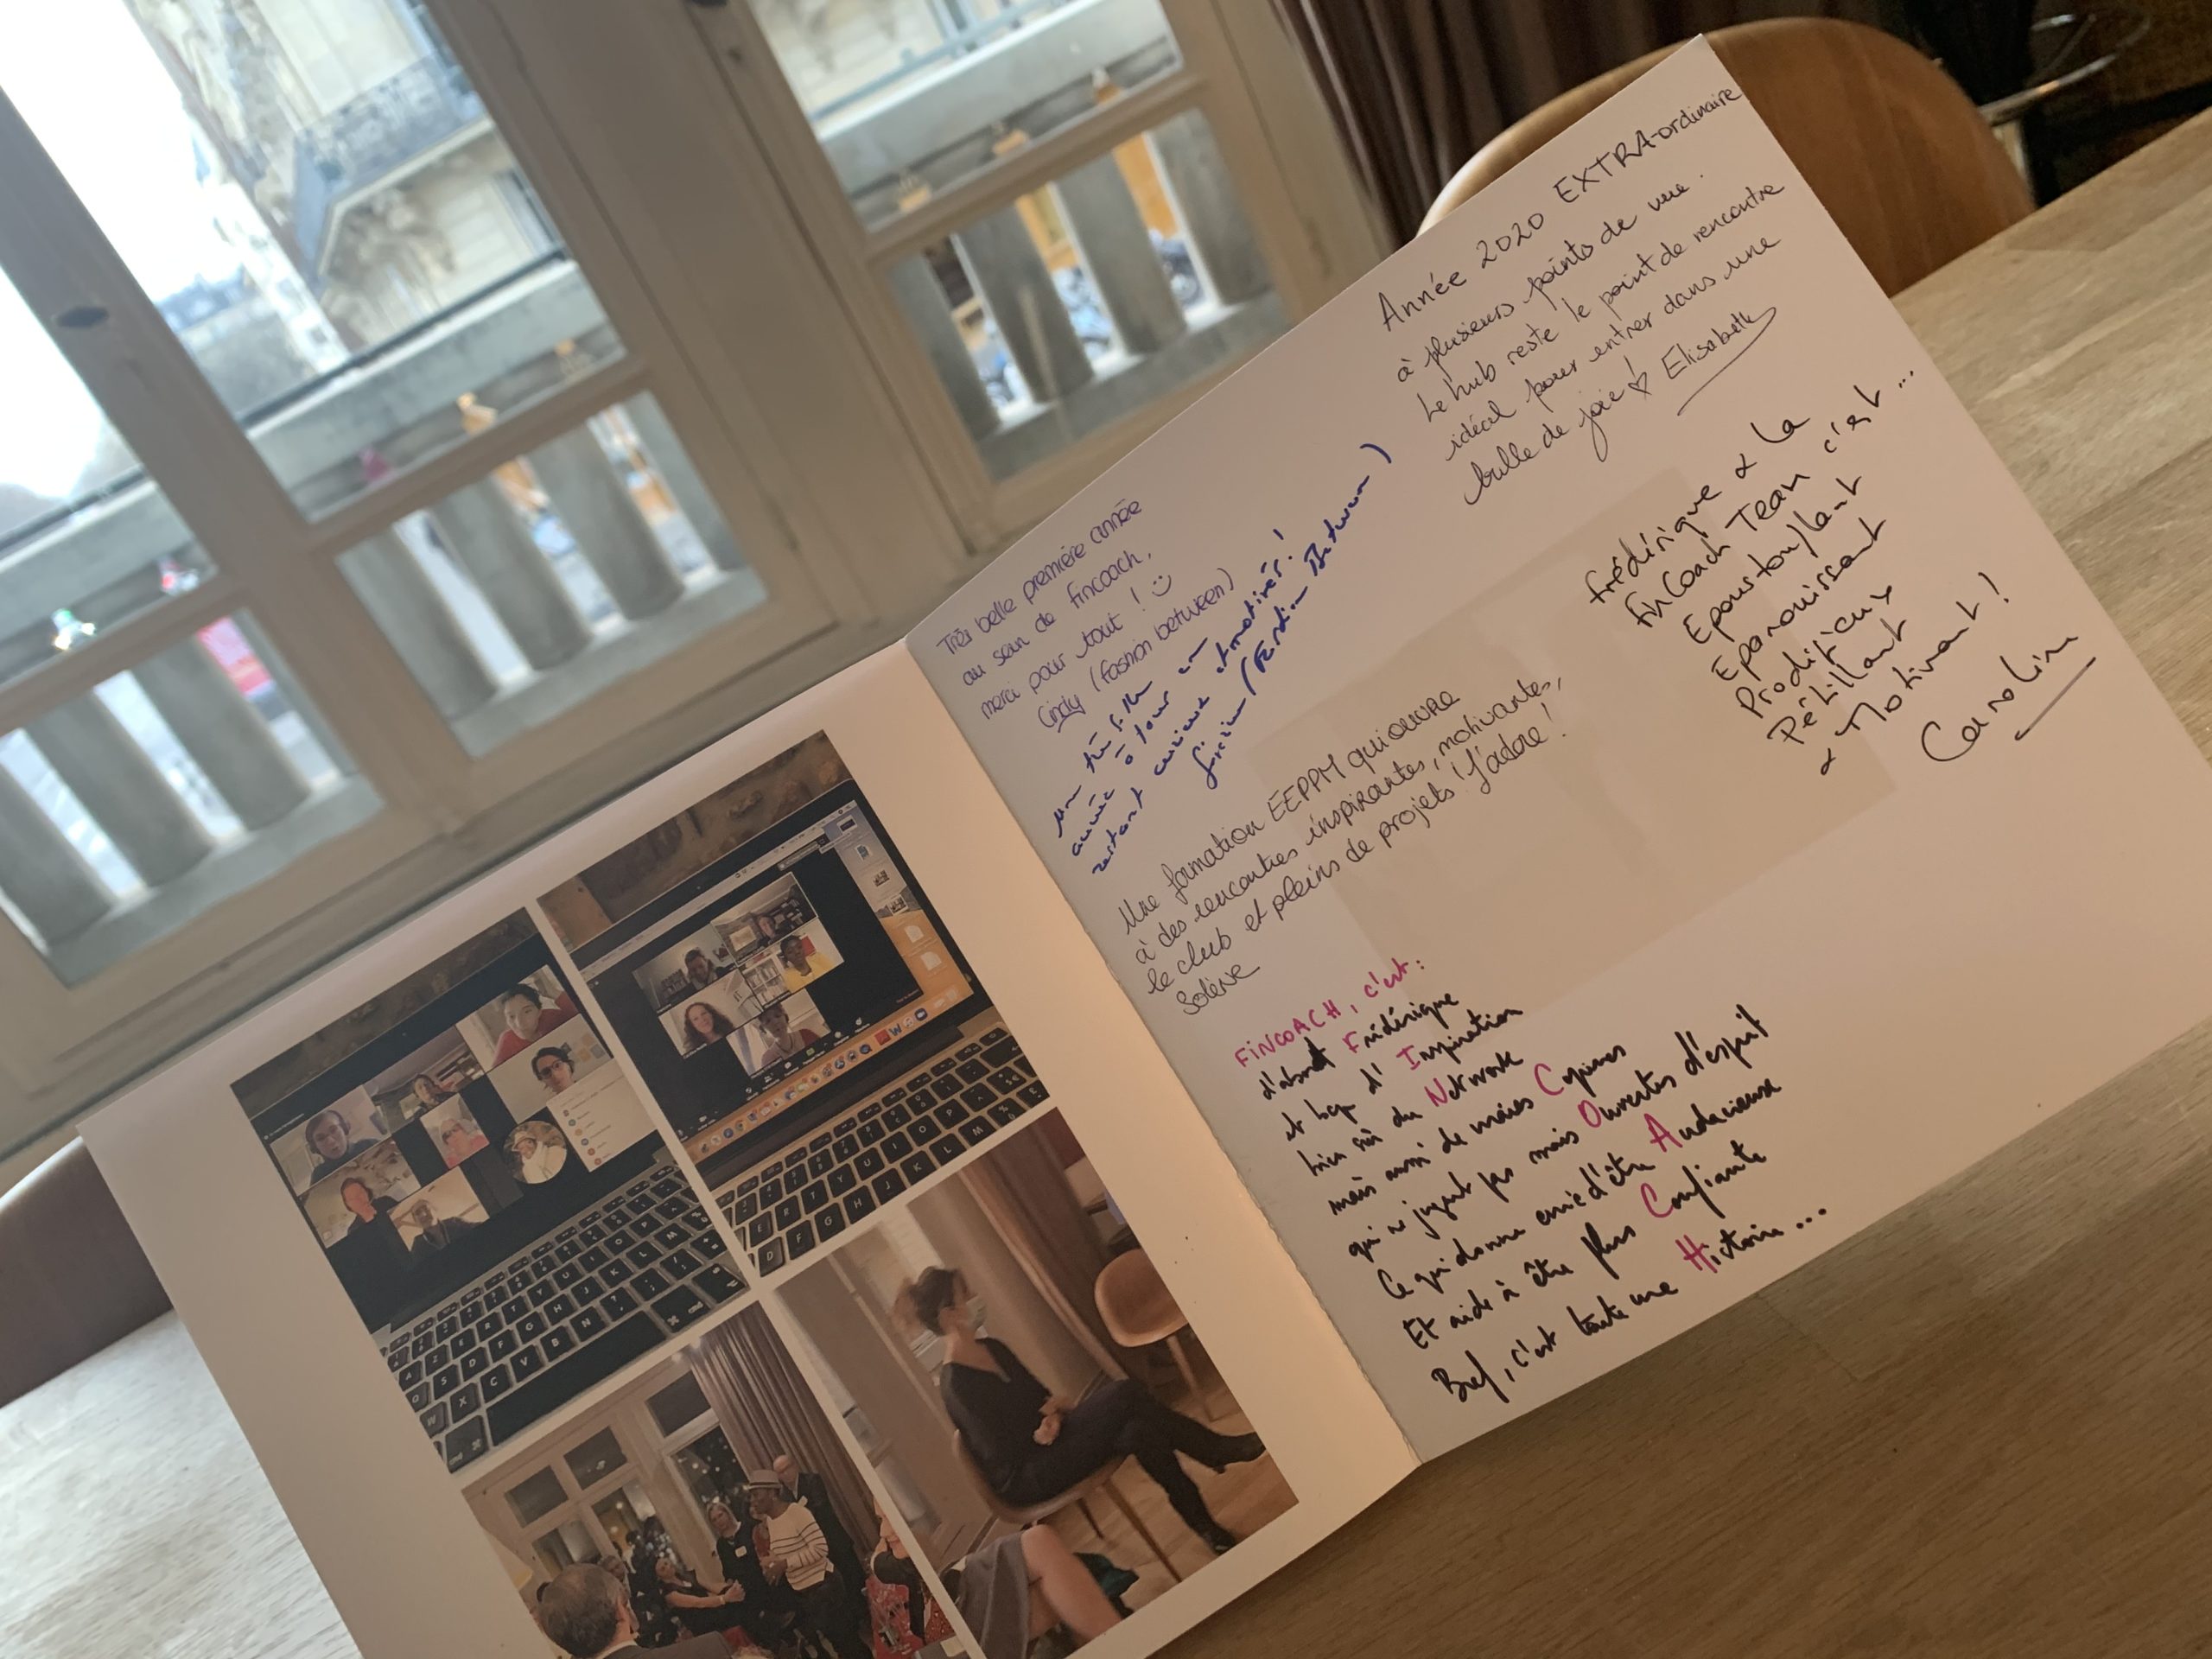 Année 2020 EXTRA-ordinaire
à plusieurs points de vue.
Le hub reste le point de rencontre
idéal pour entrer dans une
bulle de joie ! ♡ Elisabeth
Très belle première année
au sein de fincoach,
merci pour tout ! :)
Cindy (fashion between)
Un
année
restant curieux et motivés !
Frédérique & la
FinCoach Team c'est...
Epoustouflant
Epanouissant
Prodigieux
Pétillant
& Motivant !
Caroline
Une formation EEPPM qui ouvre
à des rencontres inspirantes, motivantes,
le club et pleins de projets ! J'adore !
Solène
FiNCOACH, c'est :
d'abord Frédérique
et bcp d'Inspiration
bien sûr du Network
mais aussi de mères Copines
qui ne jugent pas mais Ouvertes d'esprit
Ce qui donne envie d'être Audacieuse
Et aide à être plus Confiante
Bref, c'est toute une Histoire...